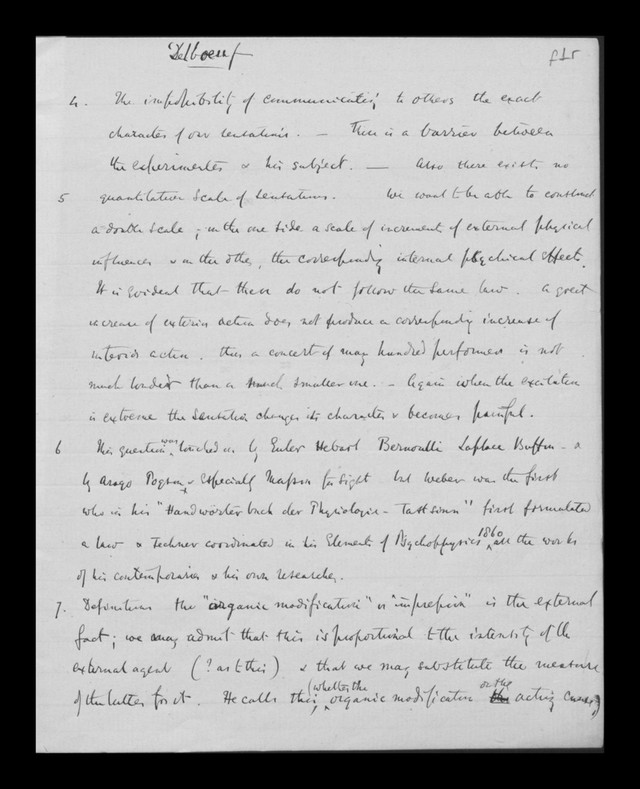 Delboeuf
f15
4. The impossibility of communicating to others the exact
character of our sensations. — There is a barrier between
the experimenter & his subject. — Also there exists no
5 quantitative scale of sensations. We want to be able to construct
a double scale, on the one side a scale of increments of external physical
influences & on the other, the corresponding internal psychical effects.
It is evident that these do not follow the same law. A great
increase of exterior action does not produce a corresponding increase of
interior action, thus a concert of many hundred performers is not
much louder than a much smaller one. — Again when the excitation
is extreme the sensation changes its character & becomes painful.
6 This question was touched on by Euler Hebart Bernoulli Laplace Buffon – &
by Arago Pogson & especially Masson for sight but Weber was the first
who in his "Handwörterbuch der Physiologie – Tastsinn" first formulated
a law & Fechner coordinated in his Elements of Psychophysics 1860 all the works
of his contemporaries & his own researches.
7. Definitions the "organic modification" or "impression" is the external
fact; we may admit that this is proportional to the intensity of the
external agent (? as to this) & that we may substitute the measure
of the latter for it. He calls this, (whether the organic modification or the acting cause)